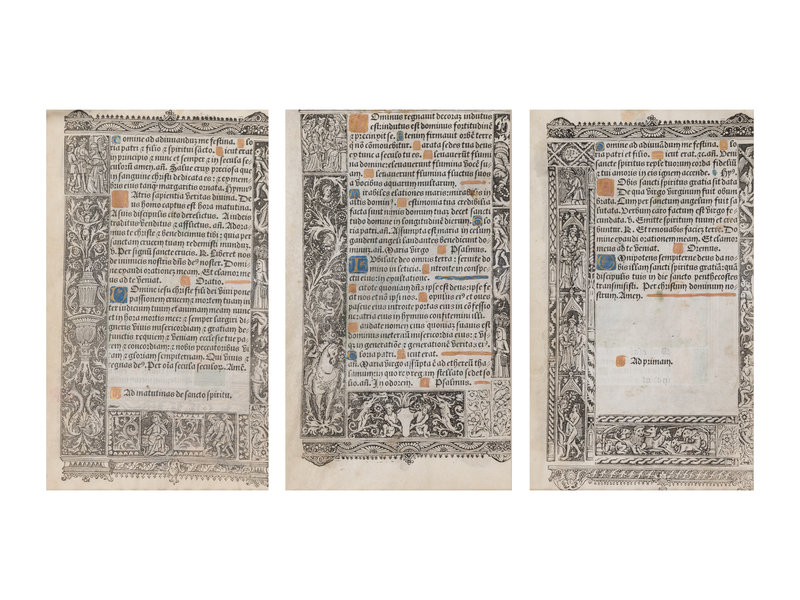 Domine ad adiuuandū me festina. Glo
ria patri ⁊ filio ⁊ spiritui scō. Sicut erat
in principio ⁊ nunc et semper ⁊ in secula se
culorū amen. añ. Salue crux preciosa que
in sanguine christi dedicata es: ⁊ ex mem
bris eius tanq̄ margaritis ornata. Hymnꝰ
Patris sapientia veritas diuina. De
us homo captus est hora matutina.
A suis discipulis cito derelictus. A iudeis
traditus venditus ⁊ afflictus. añ. Adora
mus te christe ⁊ benedicimus tibi: quia per
sanctam crucem tuam redemisti mundū.
℣. Per signū sancte crucis. ℟. Liberet nos
de inimicis nostris dñs deꝰ noster. Domi
ne exaudi orationē meam. Et clamor me
us ad te veniat. Oratio.
Domine iesu christe fili dei viui pone
passionem crucem ⁊ mortem tuam in
ter iudicium tuum et animam meam nunc
et in hora mortis mee: ⁊ semper largiri di
gneris viuis misericordiam ⁊ gratiam de
functis requiem ⁊ veniam ecclesie tue pa
cem ⁊ concordiam: ⁊ nobis peccatoribus vi
tam ⁊ gloriam sempiternam. Qui viuis ⁊
regnas deꝰ. Per oīa secula seculoꝝ. Amē.
Ad matutinas de sancto spiritu.
Dominus regnauit decorem indutus
est: indutus est dominus fortitudinē
⁊ precinxit se. Etenim firmauit orbē terre
q̄ nō cōmouebitur. Parata sedes tua deus
ex tunc a seculo tu es. Eleuauerunt flumi
na domine: eleuauerunt flumina vocē su
am. Eleuauerunt flumina fluctus suos
a vocibus aquarum multarum.
Mirabiles elationes maris: mirabilis in
altis dominꝰ. Testimonia tua credibilia
facta sunt nimis domum tuam decet sancti
tudo domine in longitudinē dierum. Glo
ria patri. añ. Assumpta est maria in celum
gaudent angeli laudantes benedicunt do
minum. añ. Maria virgo Psalmus.
Jubilate deo omnis terra: seruite do
mino in leticia. Introite in conspe
ctu eius: in exultatione.
Scitote quoniam dñs ipse est deus: ipse fe
cit nos et nō ipsi nos. Populus eiꝰ et oues
pascue eius introite portas eius: in cōfessio
ne: atria eius in hymnis confitemini illi.
Laudate nomen eius quoniā suauis est
dominus in eternū misericordia eius: ⁊ vs
q̄ in generationē ⁊ generationē veritas eiꝰ
Gloria patri. Sicut erat.
añ. Maria virgo assūpta ē ad ethereū tha
lamum: in quo rex regum stellato sedet so
lio. añ. In odorem. Psalmus.
Domine ad adiuuandum me festina. Glo
ria patri et filio. Sicut erat. ⁊c. añ. Veni
sancte spiritus reple tuorum corda fideliū
⁊ tui amoris in eis ignem accende. Hyꝰ.
Nobis sancti spiritus gratia sit data
De qua virgo virginum fuit obum
brata. Cum per sanctum angelum fuit sa
lutata. Verbum caro factum est virgo fe
cundata. ℣. Emitte spiritum tuum et crea
buntur. ℟. Et renouabis faciez terre. Do
mine exaudi orationem meam. Et clamor
meus ad te veniat. Oremus.
Omnipotens sempiterne deus da no
bis illam sancti spiritus gratiā: quā
discipulis tuis in die sancto penthecostes
transmisisti. Per christum dominum no
strum. Amen.
Ad primam.